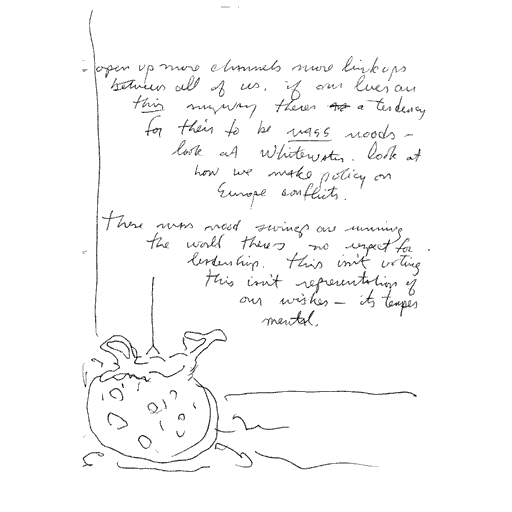 open up more channels more linkups
between all of us. if our lives are
this anyway theres a tendency
for their to be mass moods –
look at Whitewater. look at
how we make policy on
Europe conflicts.
These mass mood swings are running
the world theres no respect for
leadership. this isn't voting
this isn't representation of
our wishes – its temper
mental.